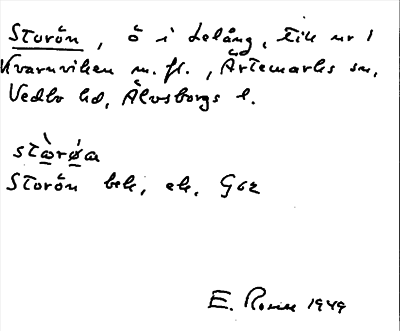 Storön, ö i Lelång, till nr 1
Kvarnviken m. fl., Ärtemarks sn,
Vedbo hd, Älvsborgs l.
stὼrǿa
Storön bek, ek, G62
E. Rosell 1949